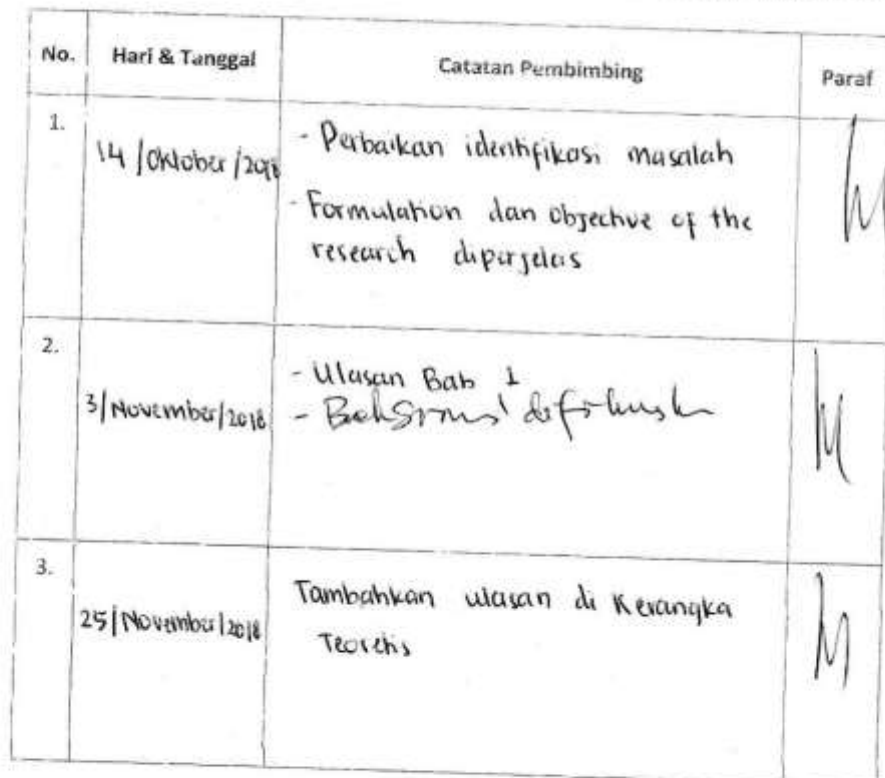 No. Hari & Tanggal Catatan Pembimbing Paraf
1. 14/Oktober/2018 - Perbaikan identifikasi masalah
- Formulation dan objective of the
research diperjelas
2. 3/November/2018 - Ulasan Bab 1
- Background difokuskan
3. 25/November/2018 Tambahkan ulasan di Kerangka
Teoretis